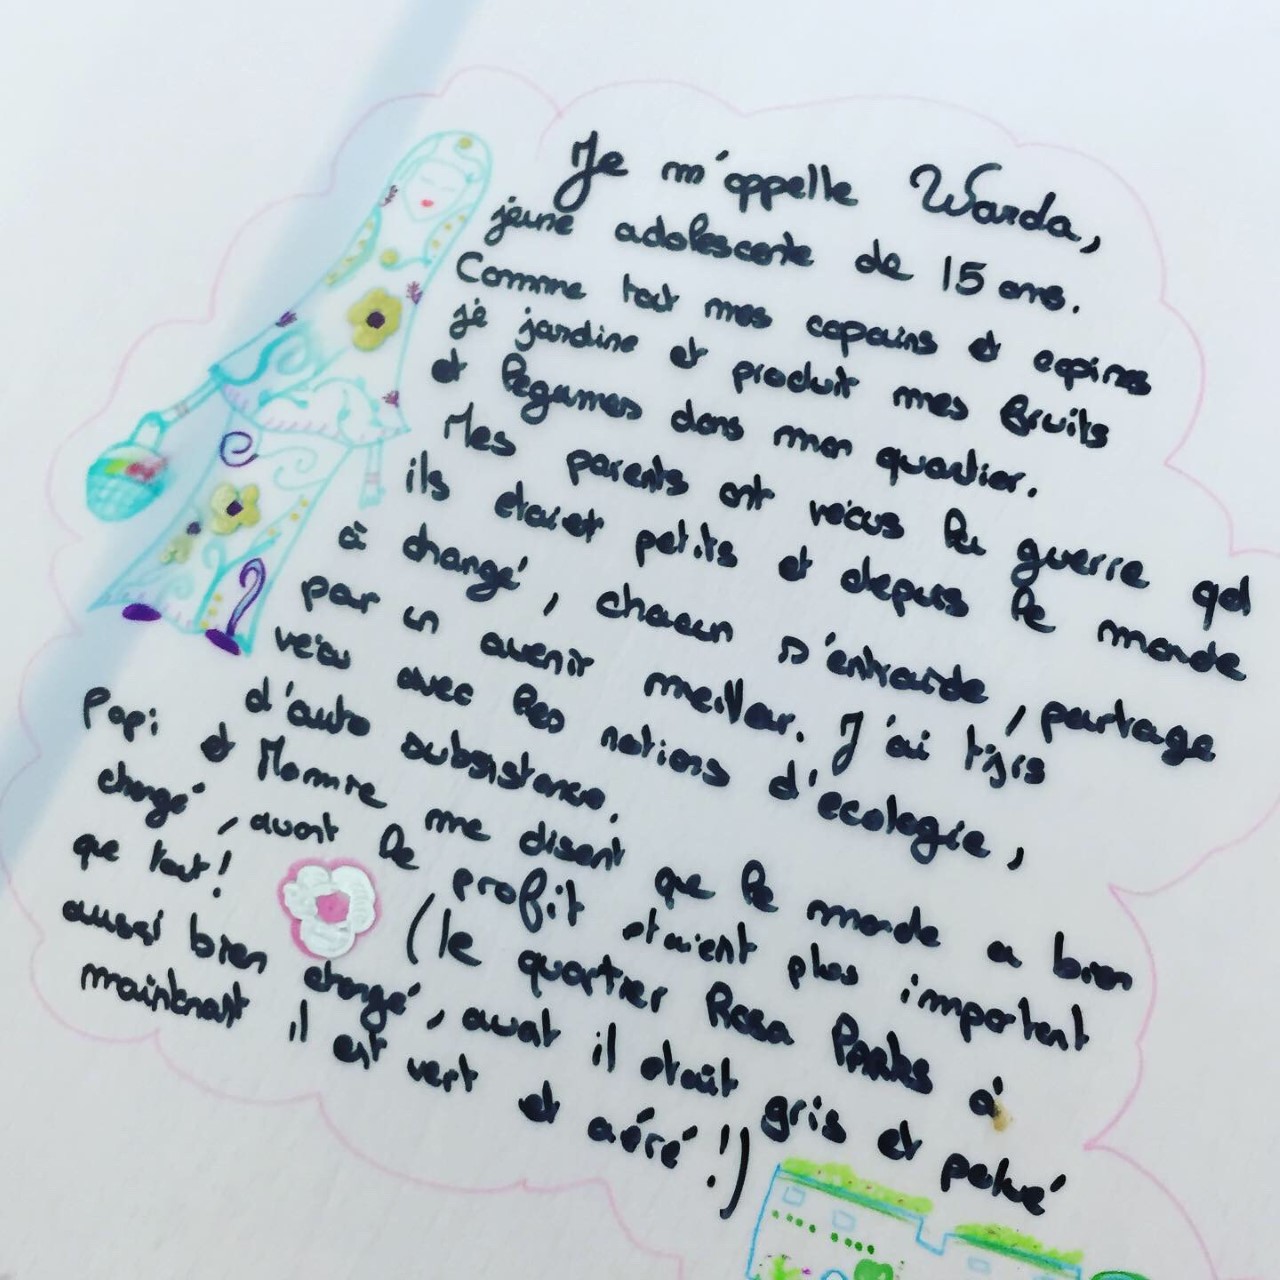 Je m'appelle Warda,
jeune adolescente de 15 ans.
Comme tout mes copains et copines
je jardine et produit mes fruits
et légumes dans mon quartier.
Mes parents ont vécus la guerre qd
ils etaient petits et depuis le monde
à changé, chacun s'entraide, partage
par un avenir meilleur. J'ai tjrs
vécu avec les notions d'écologie,
d'auto subsistance.
Papi et Mamie me disent que le monde a bien
changé, avant le profit etaient plus important
que tout! (le quartier Rosa Parks à
aussi bien changé, avant il etait gris et polué
maintenant il est vert et aéré!)